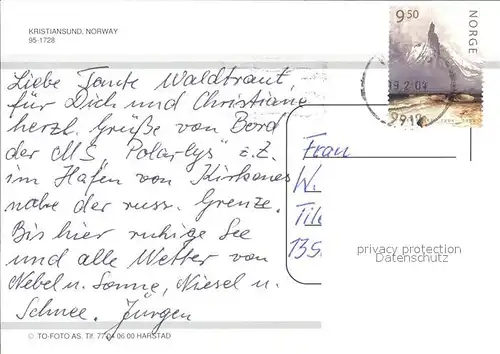 KRISTIANSUND, NORWAY
95-1728
Liebe Tante Waldtraut,
für Dich und Christiane
herzl. Grüße von Bord
der "MS Polarlys" z.Z.
im Hafen von Kirkenes
nahe der russ. Grenze.
Bis hier ruhige See
und alle Wetter von
Nebel u. Sonne, Niesel u.
Schnee. Jürgen
© TO-FOTO AS. Tlf. 77 04 06 00 HARSTAD
9.50
NORGE
9912
Frau
W.
Tile
135
privacy protection
Datenschutz